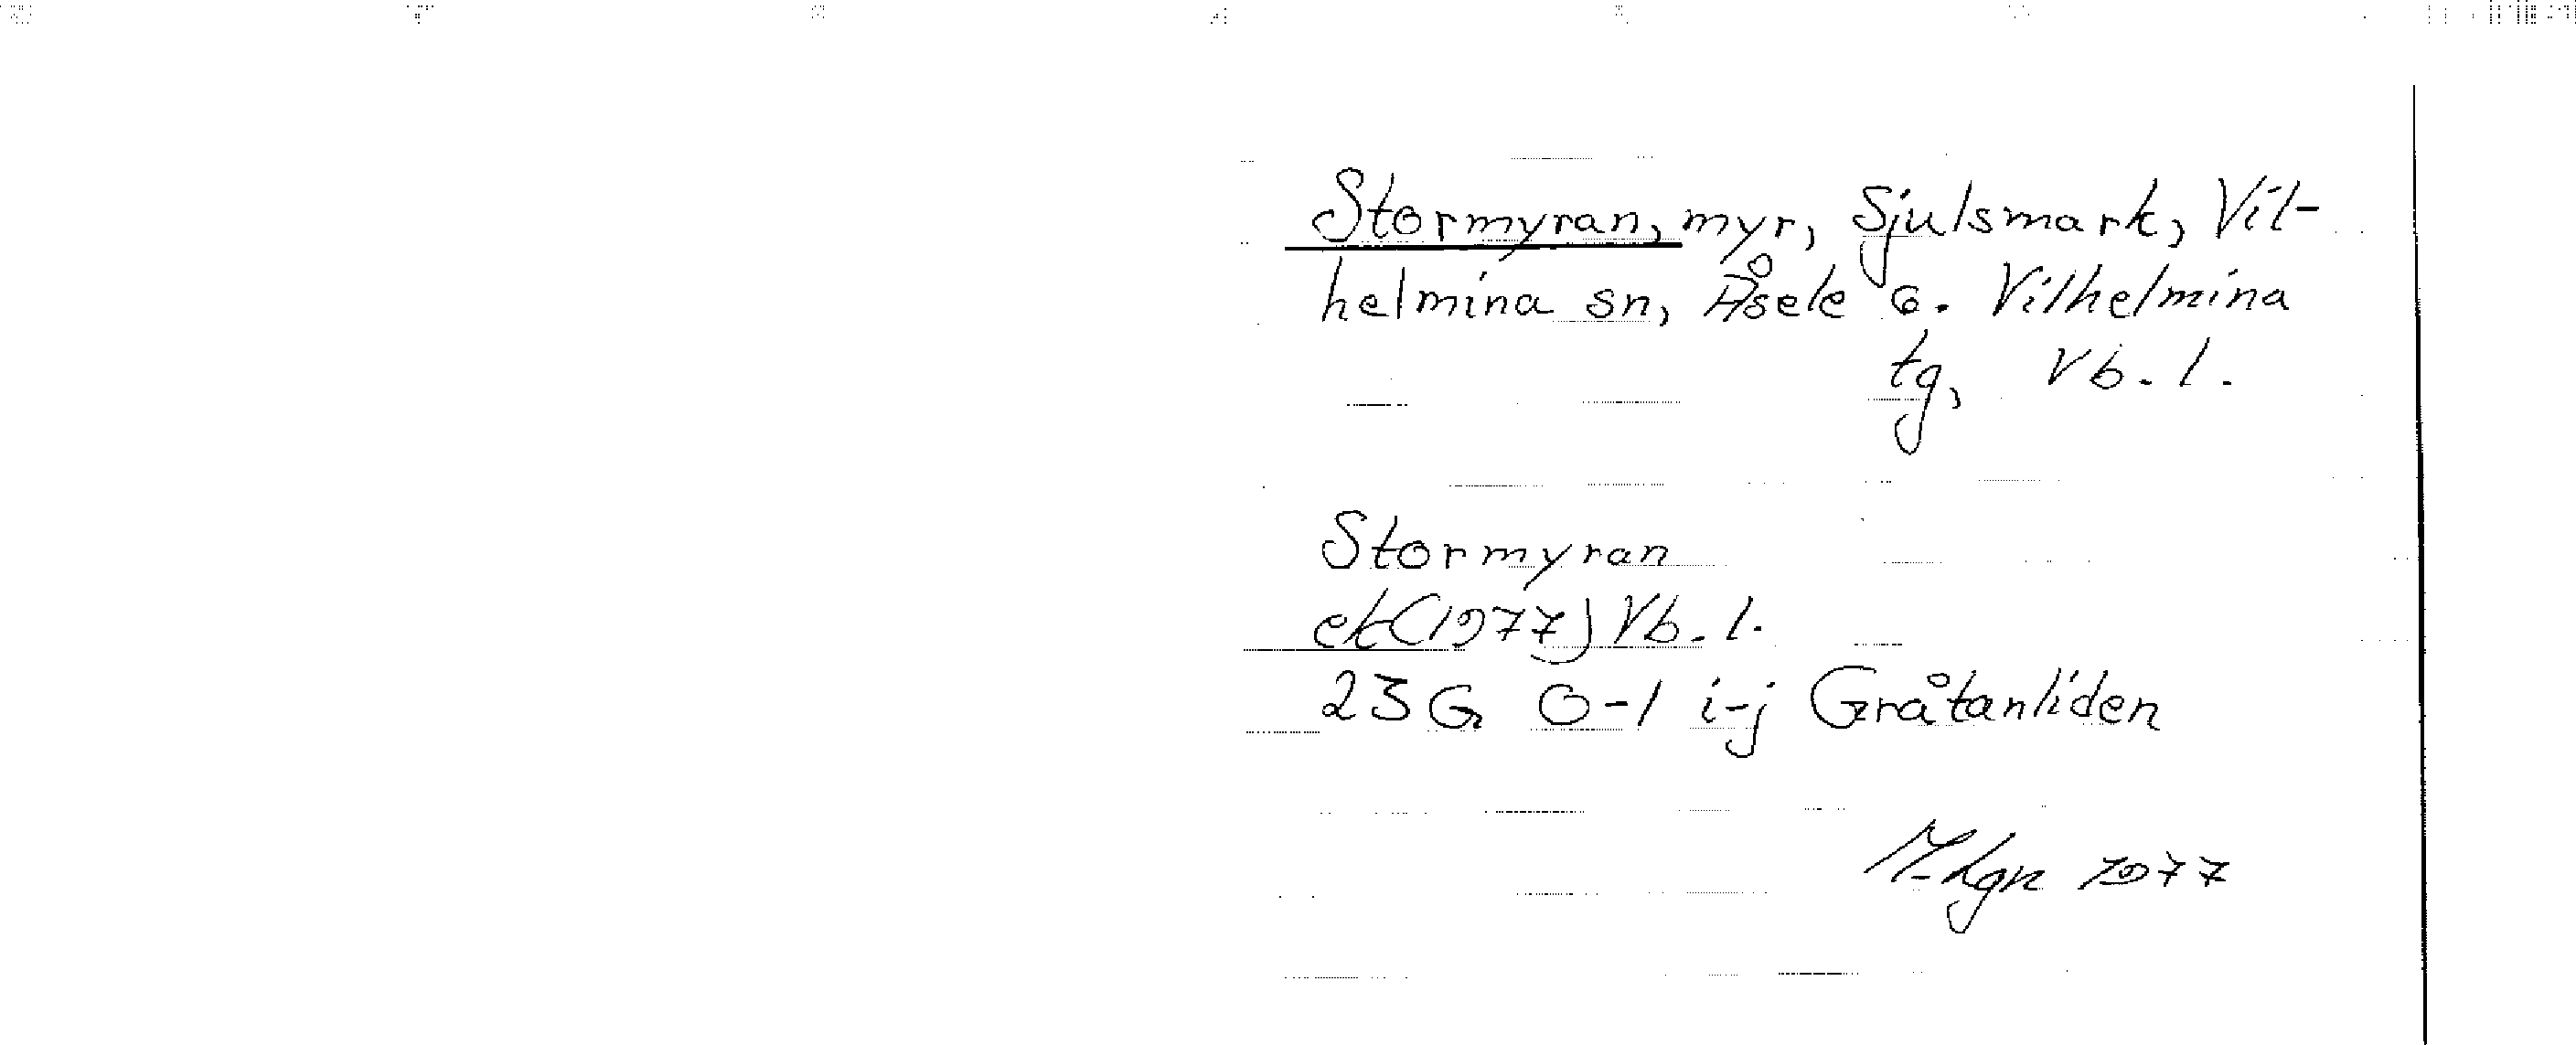 Stormyran, myr, Sjulsmark, Vil-
helmina sn, Åsele o. Vilhelmina
tg, Vb. l.
Stormyran
ek (1977) Vb. l.
23 G 0-1 i-j Gråtanliden
1977